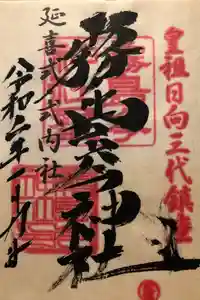 皇祖日向三代鎮座
霧島岑神社
延喜式式内社
令和二年一月